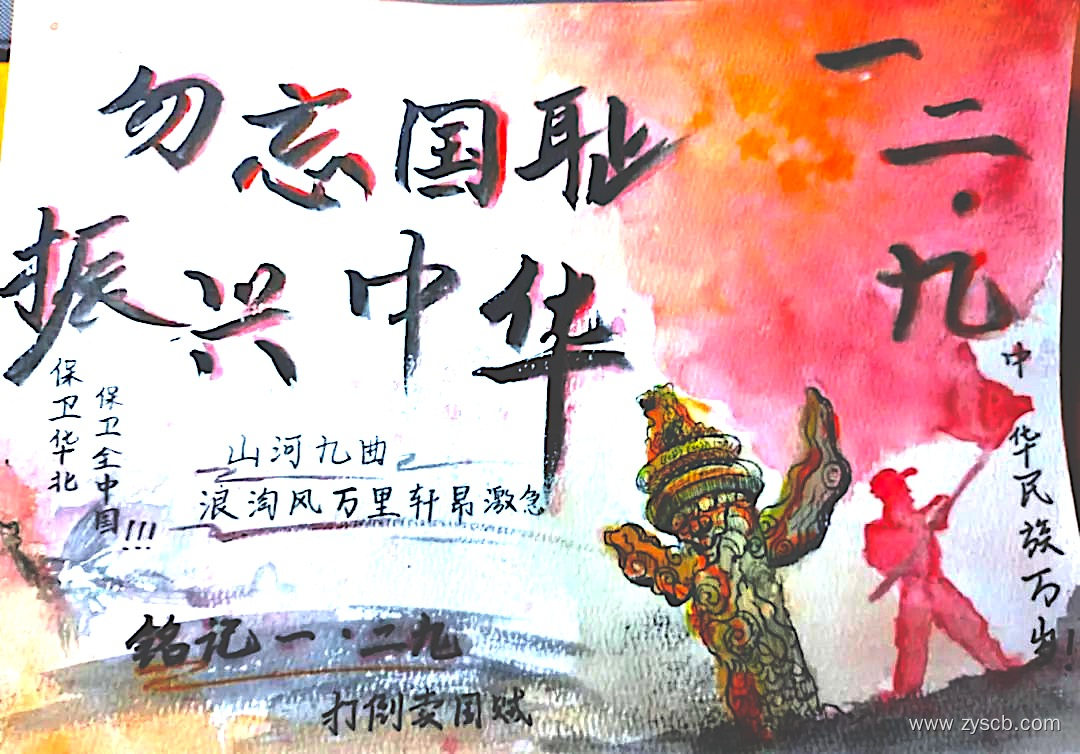 勿忘国耻
振兴中华
一二·九
保卫华北
保卫全中国!!!
山河九曲
浪淘风万里轩昂激急
铭记一·二九
打倒卖国贼
中华民族万岁!
www.zyscb.com